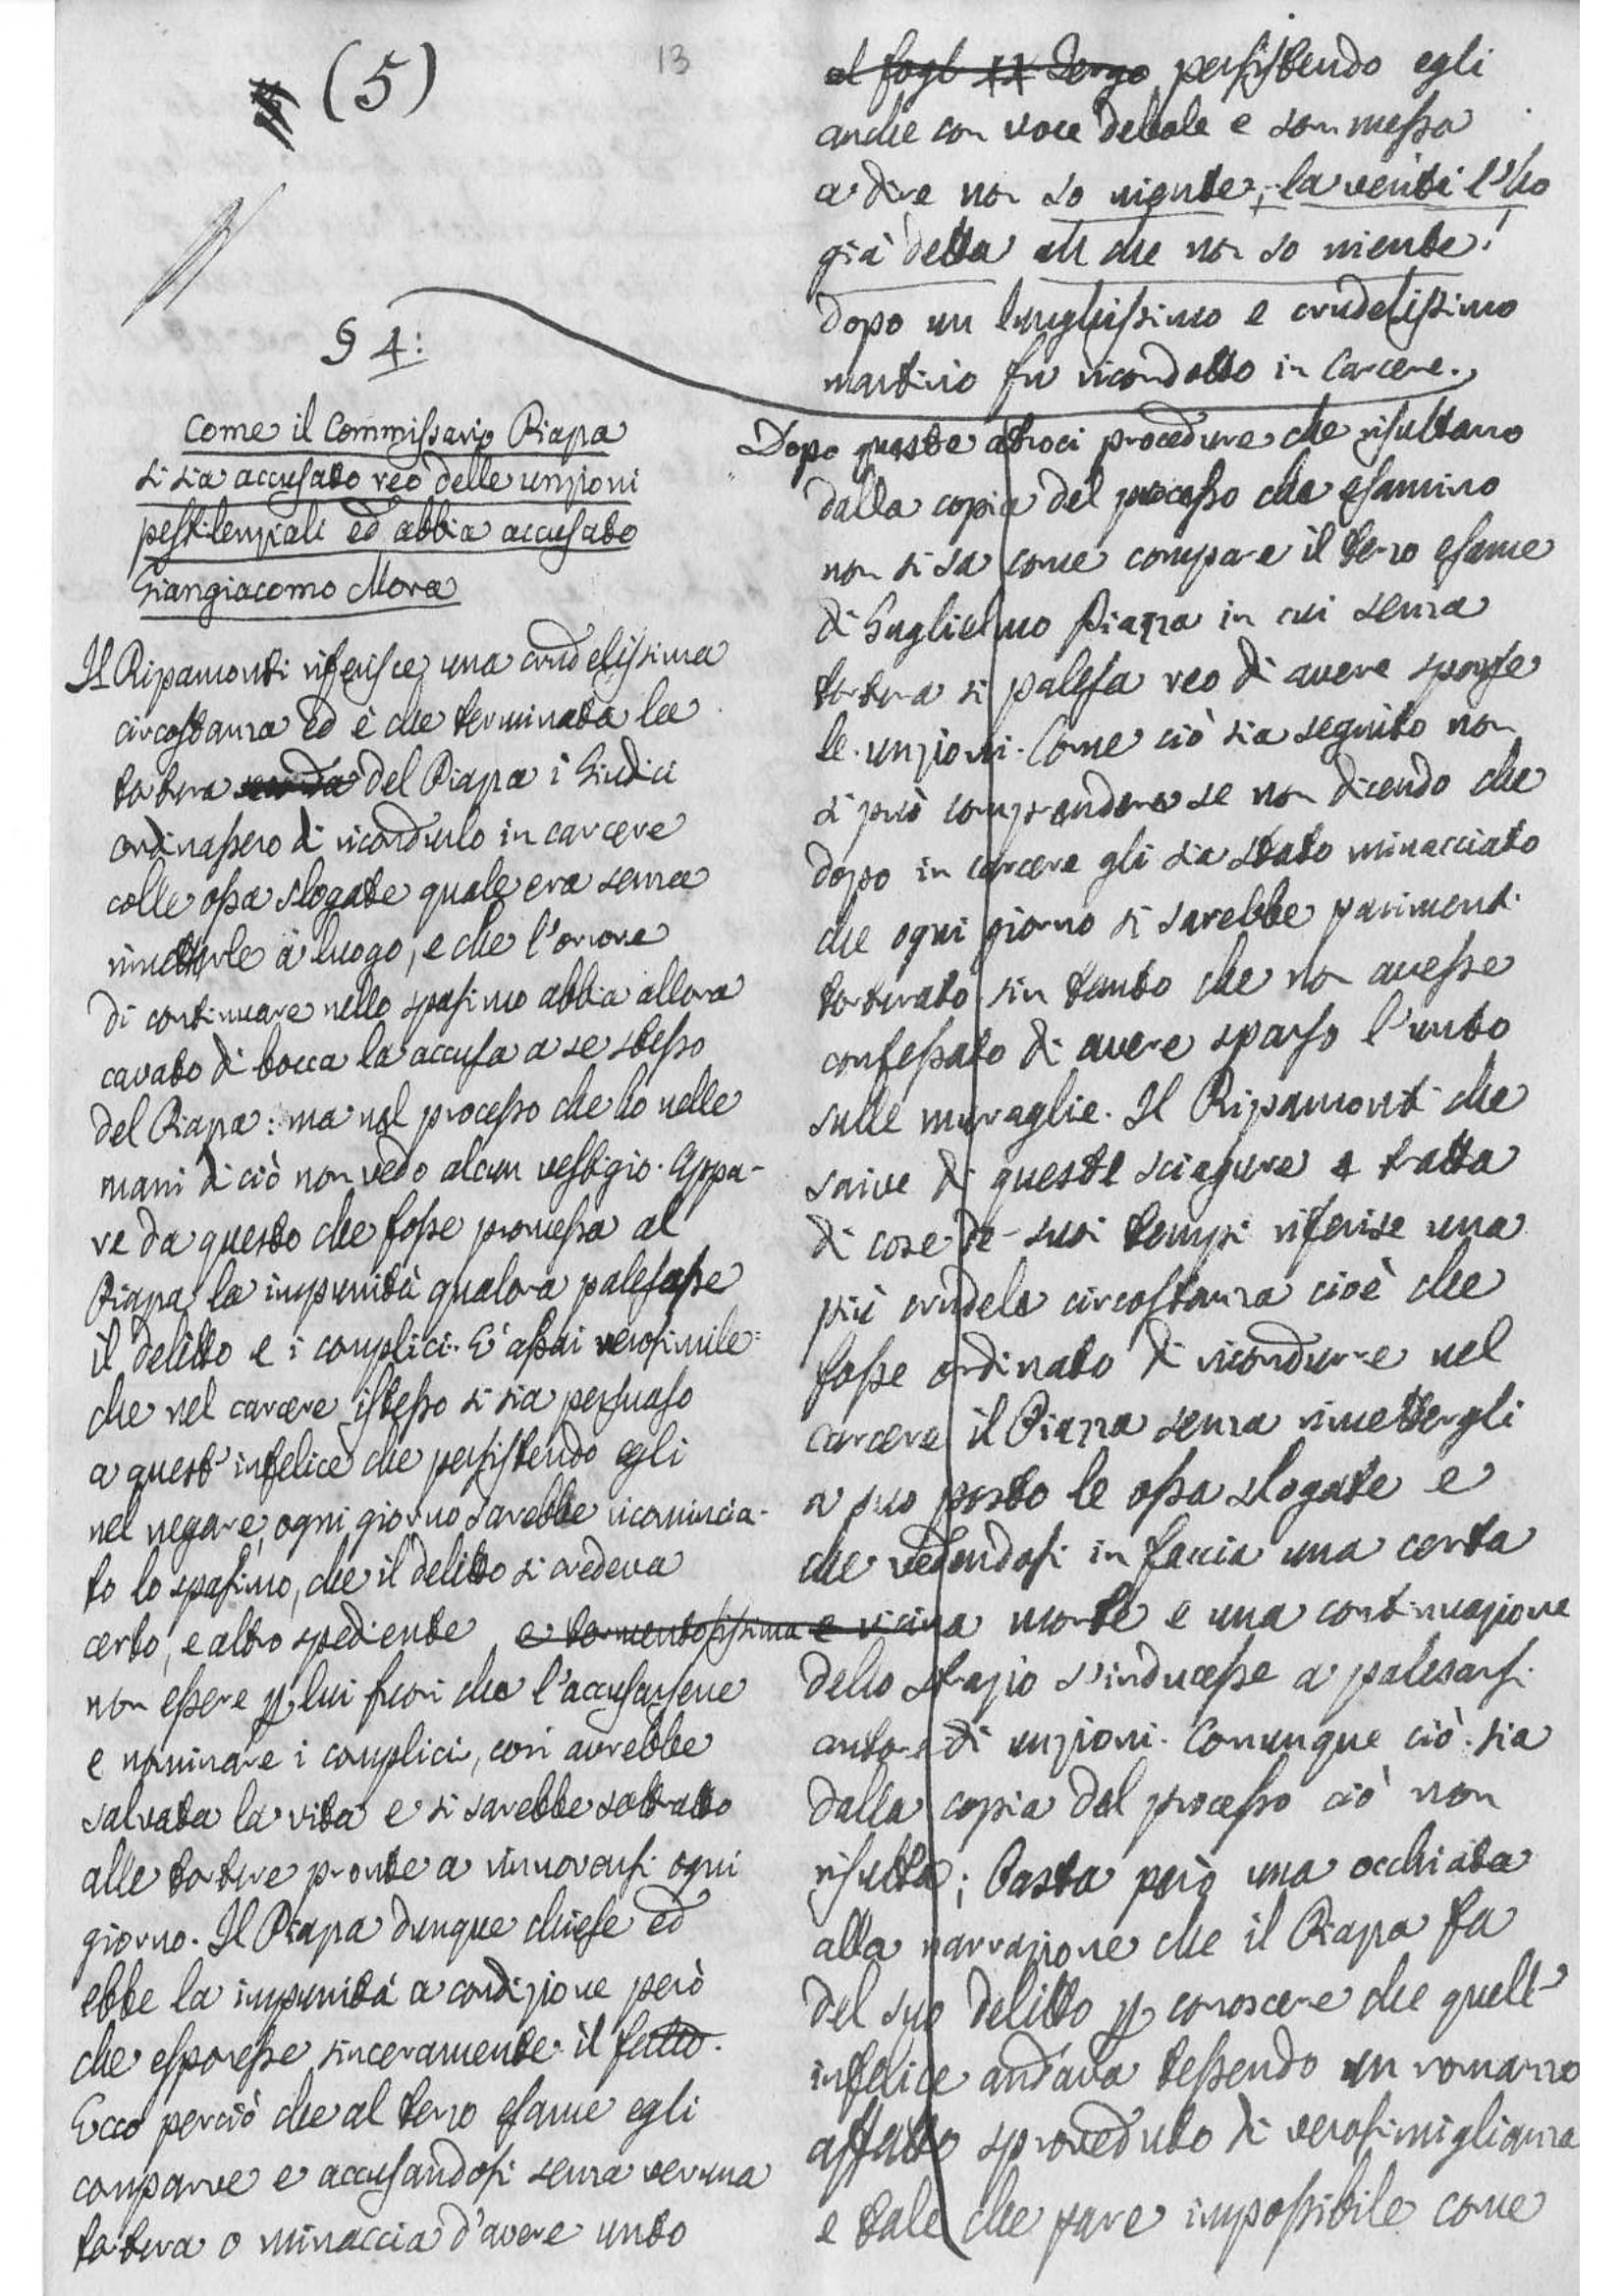 (5)
13
§ 4:
Come il Commissario Piazza
si sia accusato reo delle unzioni
pestilenziali ed abbia accusato
Giangiacomo Mora
Il Ripamonti riferisce una crudelissima
circostanza ed è che terminata la
tortura del Piazza i Giudici
ordinassero di ricondurlo in carcere
colle ossa slogate quale era senza
rimetterle a luogo, e che l'orrore
di continuare nello spasimo abbia allora
cavato di bocca la accusa a se stesso
del Piazza: ma nel processo che ho nelle
mani di ciò non vedo alcun vestigio. Appa-
re da questo che fosse promessa al
Piazza la impunità qualora palesasse
il delitto e i complici. E' assai verosimile
che nel carcere istesso si sia persuaso
a quest' infelice che persistendo egli
nel negare, ogni giorno sarebbe ricomincia-
to lo spasimo, che il delitto si credeva
certo, e altro spediente
non essere p lui fuori che l'accusarsene
e nominare i complici, così avrebbe
salvata la vita e si sarebbe sottratto
alle torture pronte a rinnovarsi ogni
giorno. Il Piazza dunque chiese ed
ebbe la impunità a condizione però
che esponesse sinceramente il fatto.
Ecco perciò che al terzo esame egli
comparve e accusandosi senza veruna
tortura o minaccia d'avere unto
al fogl tergo persistendo egli
anche con voce debole e sommessa
a dire non so niente, la verità l'ho
già detta che non so niente!
dopo un lunghissimo e crudelissimo
martirio fu ricondotto in Carcere.
Dopo queste atroci procedure che risultano
dalla copia del processo che esamino
non si sa come compare il terzo esame
di Guglielmo Piazza in cui senza
tortura si palesa reo di avere sparse
le unzioni. Come ciò sia seguito non
si può comprendere se non dicendo che
dopo in carcere gli sia stato minacciato
che ogni giorno si sarebbe pariment.
torturato sin tanto che non avesse
confessato di avere sparso l'unto
sulle muraglie. Il Ripamonti che
scrive di queste sciagure e tratta
di cose de suoi tempi riferisce una
più crudele circostanza cioè che
fosse ordinato di ricondurre nel
carcere il Piazza senza rimettergli
a suo posto le ossa slogate e
che vedendosi in faccia una certa
e tormentosissima e vicina morte e una continuazione
dello strazio s'inducesse a palesarsi
autore di unzioni. Comunque ciò sia
dalla copia del processo ciò non
risulta; basta però una occhiata
alla narrazione che il Piazza fa
del suo delitto p conoscere che quell'
infelice andava tessendo un romanzo
affatto sproveduto di verosimiglianza
e tale che pare impossibile come